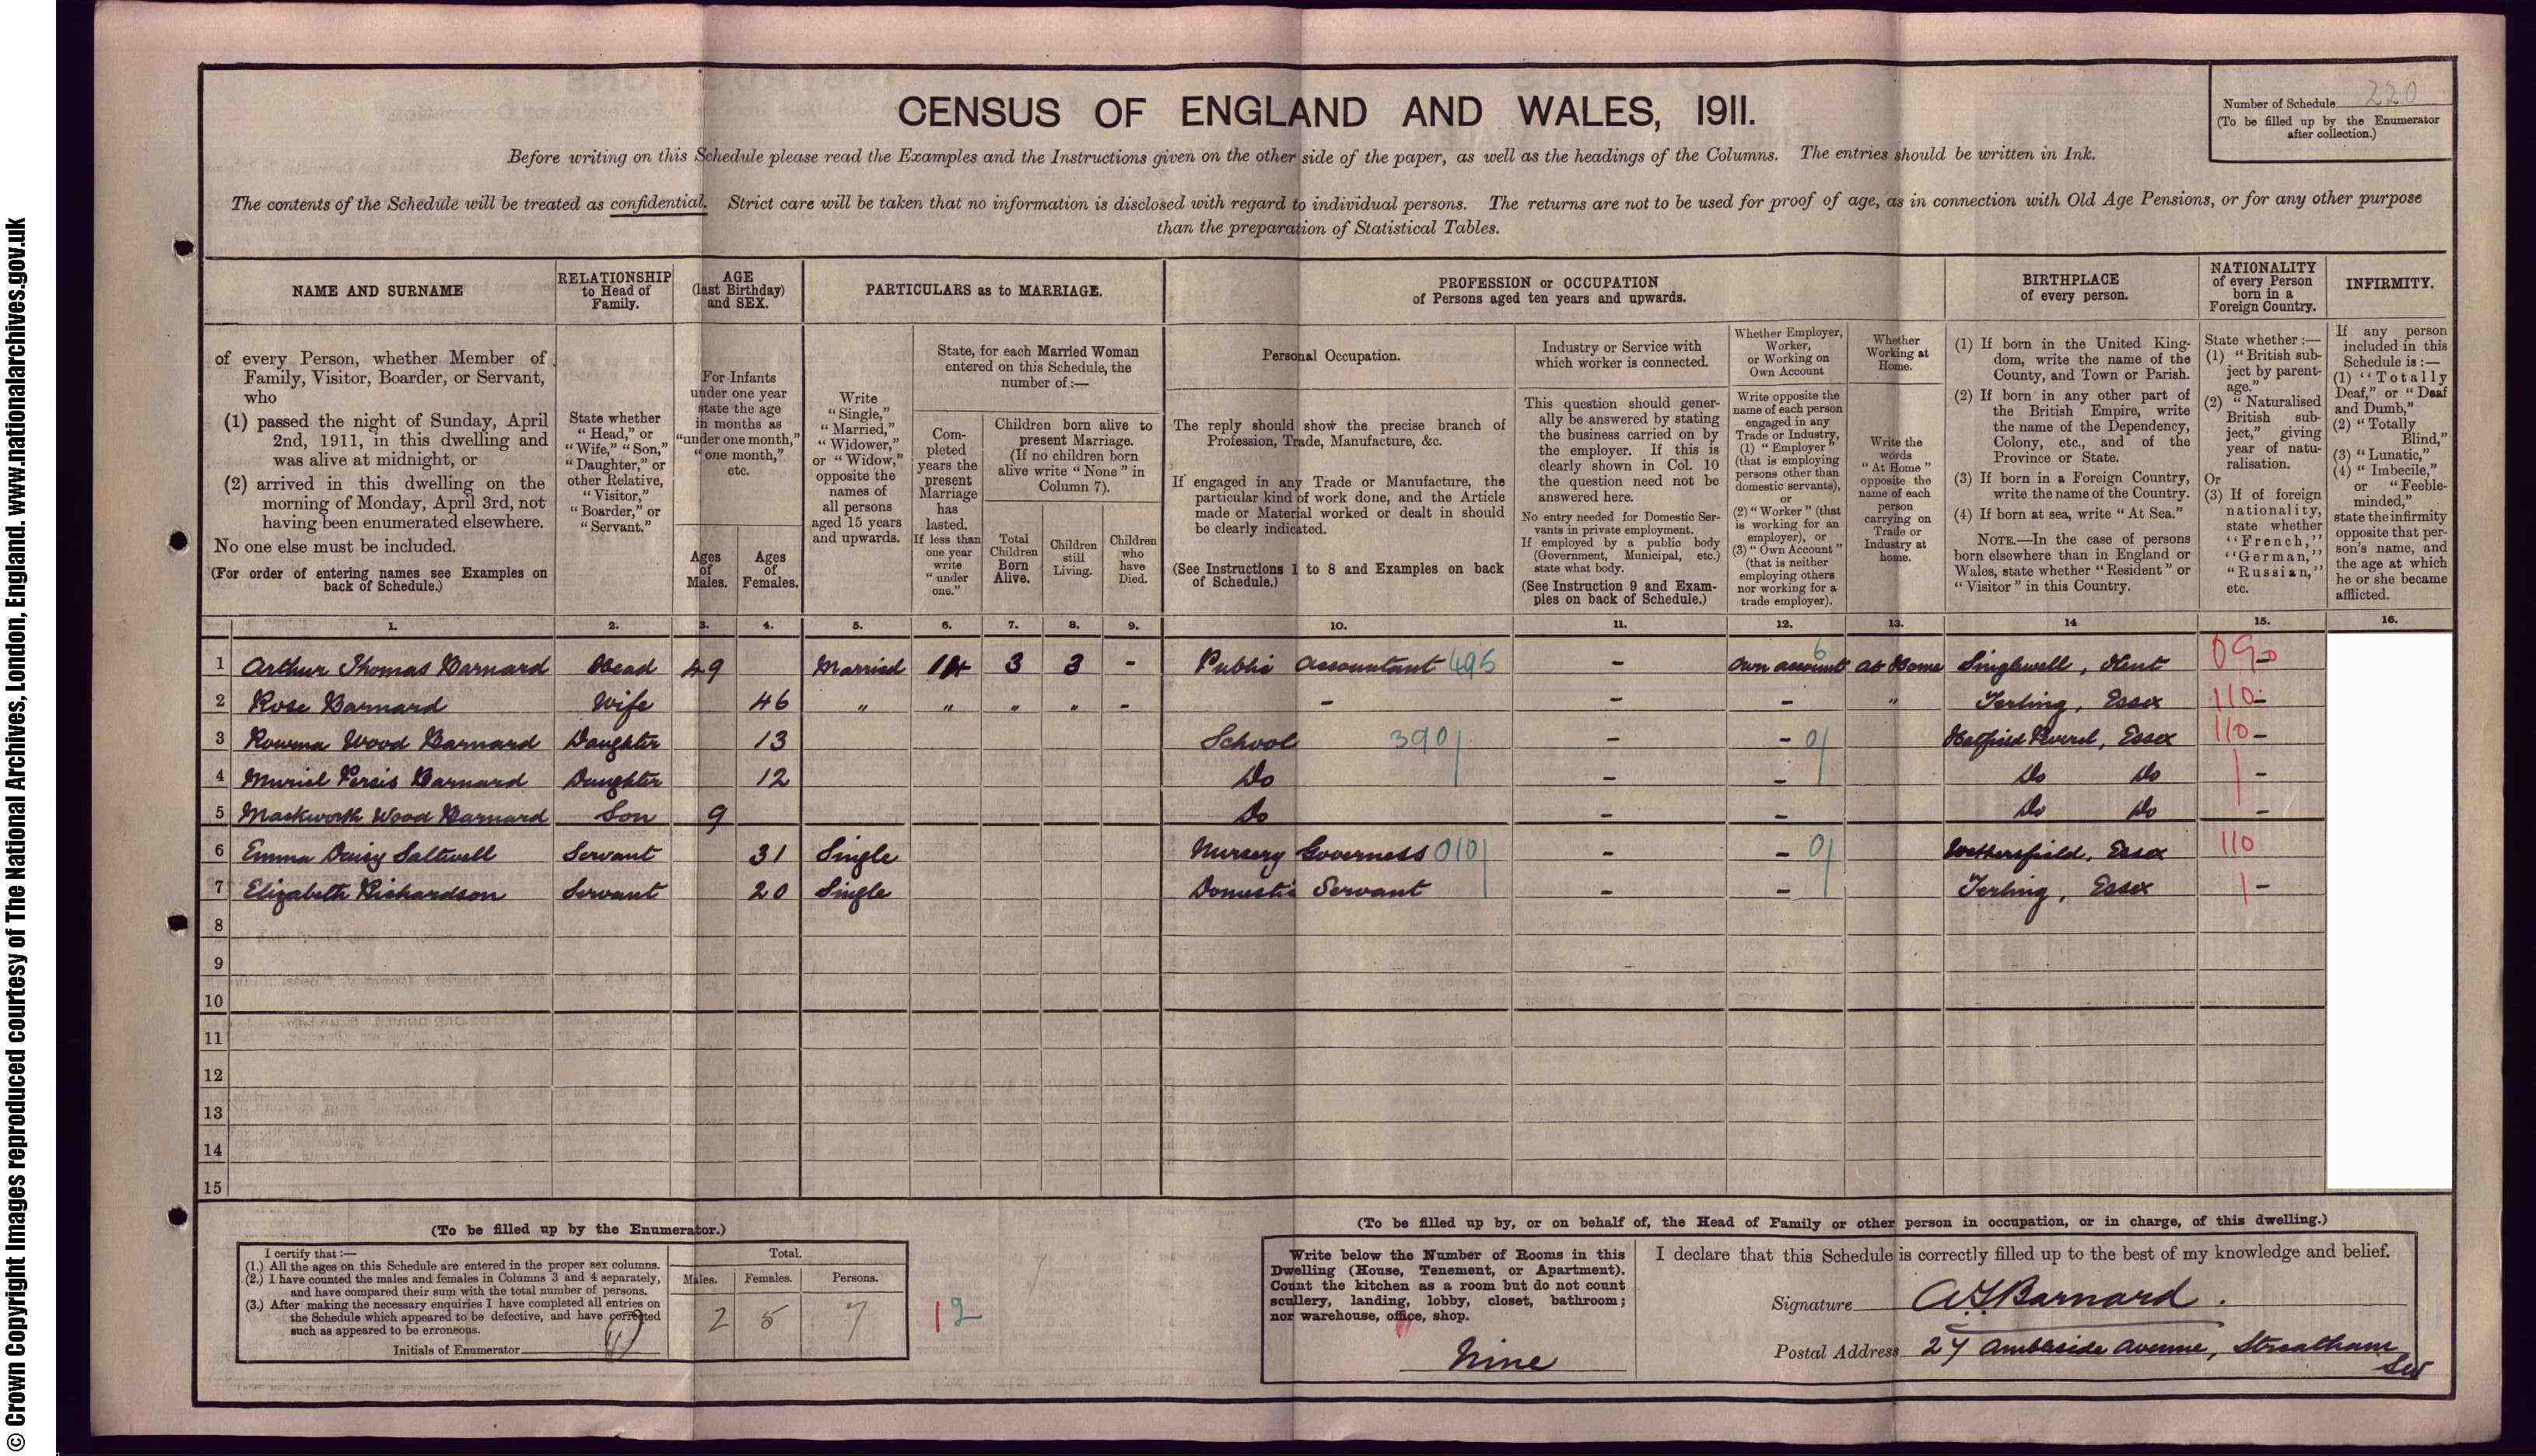 CENSUS OF ENGLAND AND WALES, 1911.
Number of Schedule 220
(To be filled up by the Enumerator after collection.)
Before writing on this Schedule please read the Examples and the Instructions given on the other side of the paper, as well as the headings of the Columns. The entries should be written in Ink.
The contents of the Schedule will be treated as confidential. Strict care will be taken that no information is disclosed with regard to individual persons. The returns are not to be used for proof of age, as in connection with Old Age Pensions, or for any other purpose
than the preparation of Statistical Tables.
NAME AND SURNAME
RELATIONSHIP to Head of Family.
AGE (last Birthday) and SEX.
PARTICULARS as to MARRIAGE.
PROFESSION or OCCUPATION of Persons aged ten years and upwards.
BIRTHPLACE of every person.
NATIONALITY of every Person born in a Foreign Country.
INFIRMITY.
of every Person, whether Member of Family, Visitor, Boarder, or Servant, who
(1) passed the night of Sunday, April 2nd, 1911, in this dwelling and was alive at midnight, or
(2) arrived in this dwelling on the morning of Monday, April 3rd, not having been enumerated elsewhere.
No one else must be included.
(For order of entering names see Examples on back of Schedule.)
State whether "Head," or "Wife," "Son," "Daughter," or other Relative, "Visitor," "Boarder," or "Servant."
For Infants under one year state the age in months as "under one month," "one month," etc.
Ages of Males.
Ages of Females.
Write "Single," "Married," "Widower," or "Widow," opposite the names of all persons aged 15 years and upwards.
State, for each Married Woman entered on this Schedule, the number of:—
Completed years the present Marriage has lasted. If less than one year write "under one."
Children born alive to present Marriage. (If no children born alive write "None" in Column 7).
Total Children Born Alive.
Children still Living.
Children who have Died.
Personal Occupation.
The reply should show the precise branch of Profession, Trade, Manufacture, &c.
If engaged in any Trade or Manufacture, the particular kind of work done, and the Article made or Material worked or dealt in should be clearly indicated.
(See Instructions 1 to 8 and Examples on back of Schedule.)
Industry or Service with which worker is connected.
This question should generally be answered by stating the business carried on by the employer. If this is clearly shown in Col. 10 the question need not be answered here.
No entry needed for Domestic Servants in private employment. If employed by a public body (Government, Municipal, etc.) state what body.
(See Instruction 9 and Examples on back of Schedule.)
Whether Employer, Worker, or Working on Own Account
Write opposite the name of each person engaged in any Trade or Industry, (1) "Employer" (that is employing persons other than domestic servants), or (2) "Worker" (that is working for an employer), or (3) "Own Account" (that is neither employing others nor working for a trade employer).
Whether Working at Home.
Write the words "At Home" opposite the name of each person carrying on Trade or Industry at home.
(1) If born in the United Kingdom, write the name of the County, and Town or Parish.
(2) If born in any other part of the British Empire, write the name of the Dependency, Colony, etc., and of the Province or State.
(3) If born in a Foreign Country, write the name of the Country.
(4) If born at sea, write "At Sea."
NOTE.—In the case of persons born elsewhere than in England or Wales, state whether "Resident" or "Visitor" in this Country.
State whether:—
(1) "British subject by parentage."
(2) "Naturalised British subject," giving year of naturalisation.
Or
(3) If of foreign nationality, state whether "French," "German," "Russian," etc.
If any person included in this Schedule is:—
(1) "Totally Deaf," or "Deaf and Dumb,"
(2) "Totally Blind,"
(3) "Lunatic,"
(4) "Imbecile," or "Feeble-minded,"
state the infirmity opposite that person's name, and the age at which he or she became afflicted.
1. 2. 3. 4. 5. 6. 7. 8. 9. 10. 11. 12. 13. 14 15. 16.
1 Arthur Thomas Barnard Head 49 Married 14 3 3 - Public Accountant 495 - Own account 6 At Home Singlewell, Kent 090 -
2 Rose Barnard Wife 46 " " " " - - - - " Terling, Essex 110 -
3 Rowena Wood Barnard Daughter 13 School 390 - - 0 Hatfield Peverel, Essex 110 -
4 Muriel Persis Barnard Daughter 12 Do - - Do Do -
5 Mackworth Wood Barnard Son 9 Do - - Do Do -
6 Emma Daisy Saltwell Servant 31 Single Nursery Governess 010 - - 0 Wethersfield, Essex 110
7 Elizabeth Richardson Servant 20 Single Domestic Servant - - Terling, Essex -
8
9
10
11
12
13
14
15
(To be filled up by the Enumerator.)
I certify that:—
(1.) All the ages on this Schedule are entered in the proper sex columns.
(2.) I have counted the males and females in Columns 3 and 4 separately, and have compared their sum with the total number of persons.
(3.) After making the necessary enquiries I have completed all entries on the Schedule which appeared to be defective, and have corrected such as appeared to be erroneous.
Initials of Enumerator
Total.
Males. Females. Persons.
2 5 7
12
(To be filled up by, or on behalf of, the Head of Family or other person in occupation, or in charge, of this dwelling.)
Write below the Number of Rooms in this Dwelling (House, Tenement, or Apartment). Count the kitchen as a room but do not count scullery, landing, lobby, closet, bathroom; nor warehouse, office, shop.
Nine
I declare that this Schedule is correctly filled up to the best of my knowledge and belief.
Signature A T Barnard.
Postal Address 27 Ambleside Avenue, Streatham SW
© Crown Copyright Images reproduced courtesy of The National Archives, London, England. www.nationalarchives.gov.uk